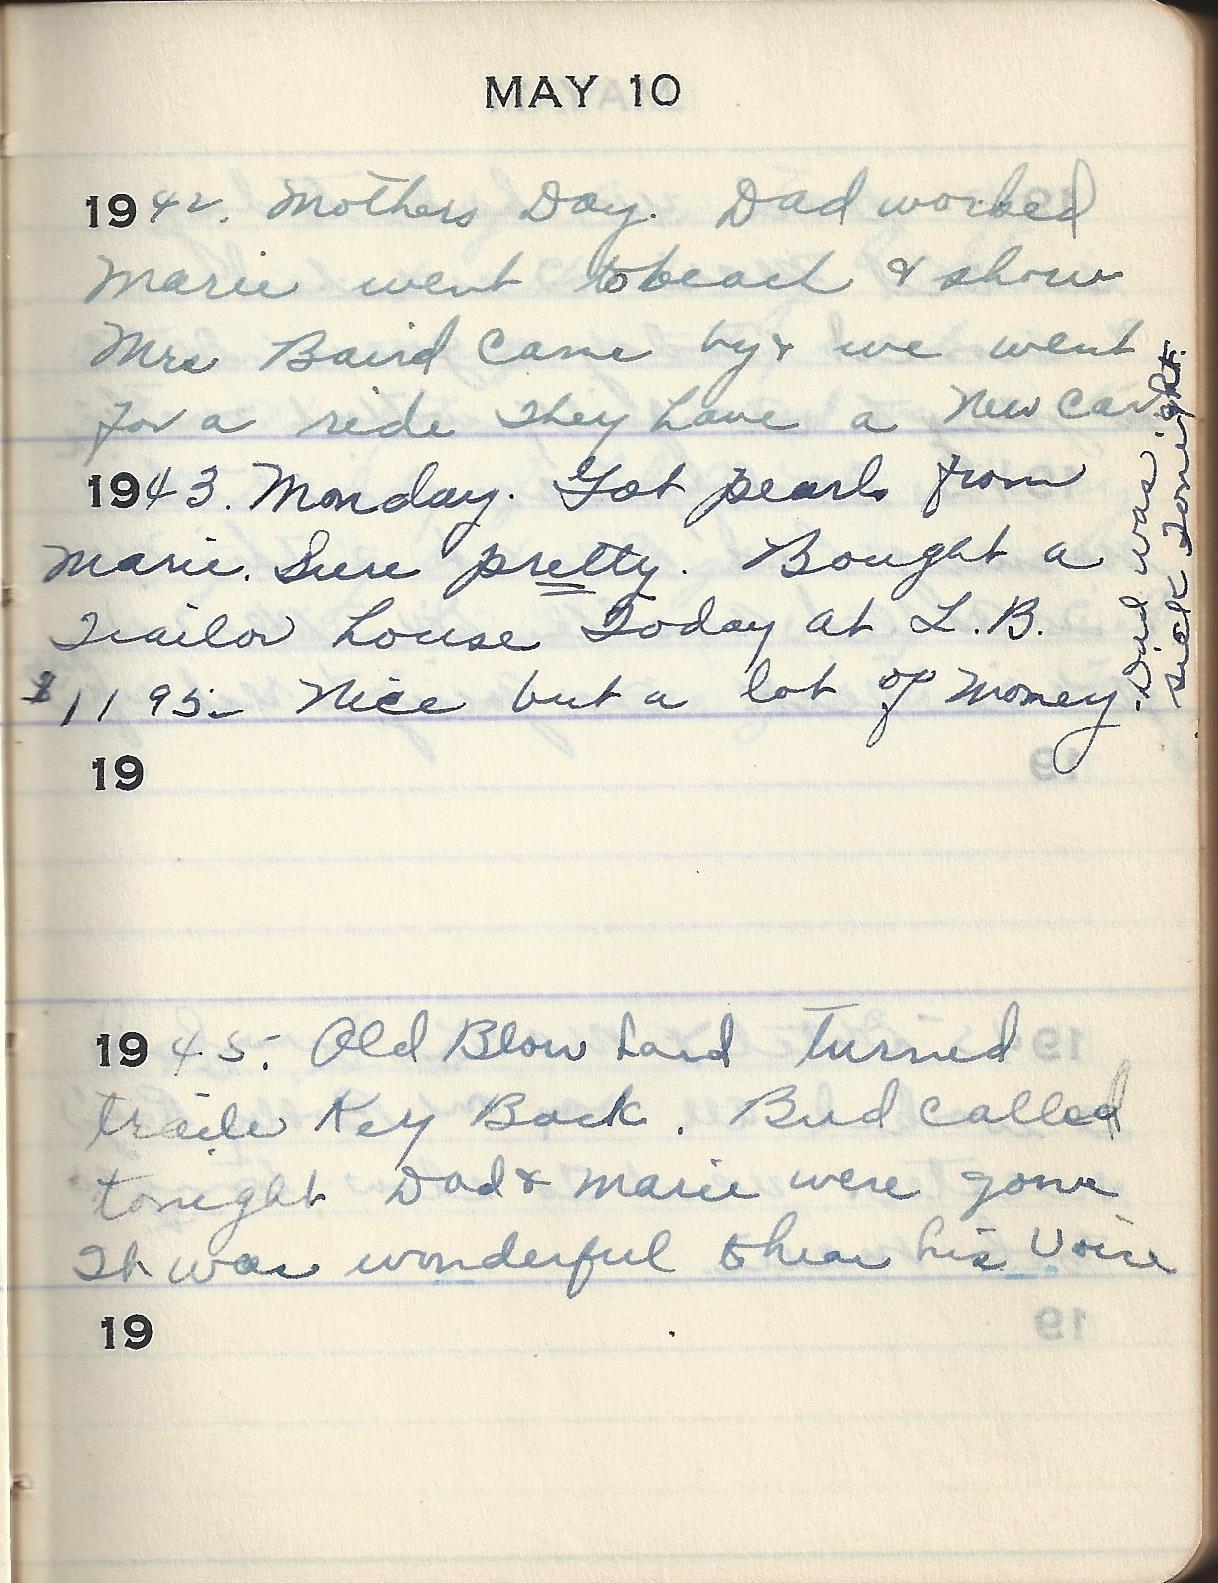 MAY 10
1942. Mothers Day. Dad worked
Marie went to beach & show
Mrs Baird came by & we went
for a ride They have a New Car
1943. Monday. Got pearls from
Marie. Sure pretty. Bought a
Trailor house Today at L.B.
$1195- Nice but a lot of Money.
-Dad was
sick Tonight.
19
1945. Old Blow hard turned
trailer Key Back. Bud called
tonight Dad & Marie were gone
It was wonderful to hear his Voice
19